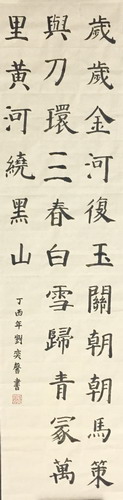 歲歲金河復玉關朝朝馬策
與刀環三春白雪歸青冢萬
里黃河繞黑山
丁酉年劉奕馨書